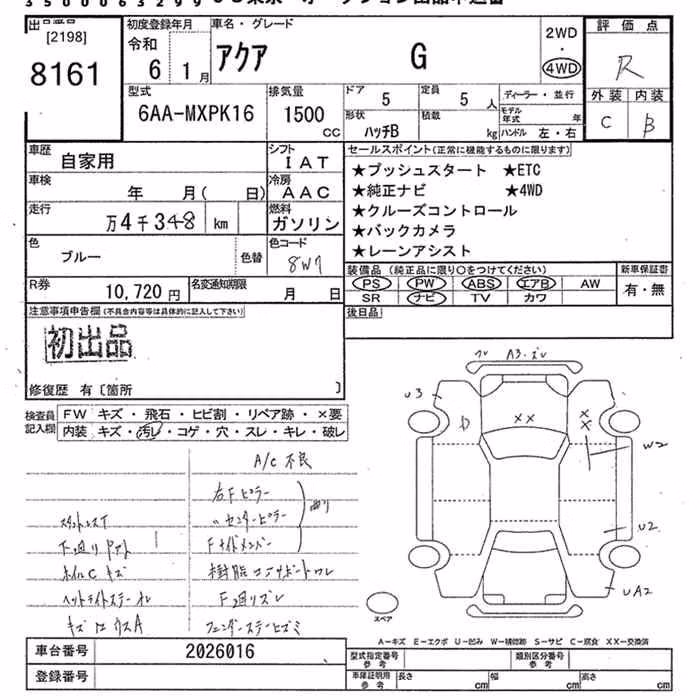 3 5 0 0 0 6 3 2 9 9
[2198]
8161
初度登録年月
令和
6 1月
車名・グレード
アクア G
2WD
・
4WD
評価点
R
外装 内装
C B
型式
6AA-MXPK16
排気量
1500
CC
ドア 5
定員 5 人
形状 ハッチB
積載 kg
ディーラー・並行
モデル年式 年
ハンドル 左・右
車歴
自家用
シフト
IAT
車検
年 月( 日)
冷房
AAC
走行
万4千348 km
燃料
ガソリン
色
ブルー
色替
色コード
8W7
R券
10,720円
名変通知期限
月 日
セールスポイント(正常に機能するものに限ります)
★プッシュスタート ★ETC
★純正ナビ ★4WD
★クルーズコントロール
★バックカメラ
★レーンアシスト
装備品(純正品に限り○をつけてください)
PS PW ABS エアB AW
SR ナビ TV カワ
新車保証書
有・無
注意事項申告欄(不具合内容等は具体的に記入して下さい)
初出品
修復歴 有〔箇所 〕
後日品
検査員
記入欄
FW キズ・飛石・ヒビ割・リペア跡・×要
内装 キズ・汚レ・コゲ・穴・スレ・キレ・破レ
A/C 不良
右Fピラー
〃センターピラー
Fサイドメンバー
下回り
ホイルCキズ
F廻リズレ
A3・ズレ
U3
××
××
W2
U2
UA2
スペア
A-キズ E-エクボ U-凹み W-補修跡 S-サビ C-腐食 XX-交換済
車台番号 2026016
登録番号
型式指定番号
参考
類別区分番号
参考
車庫証明用
参考
長さ cm
幅 cm
高さ cm